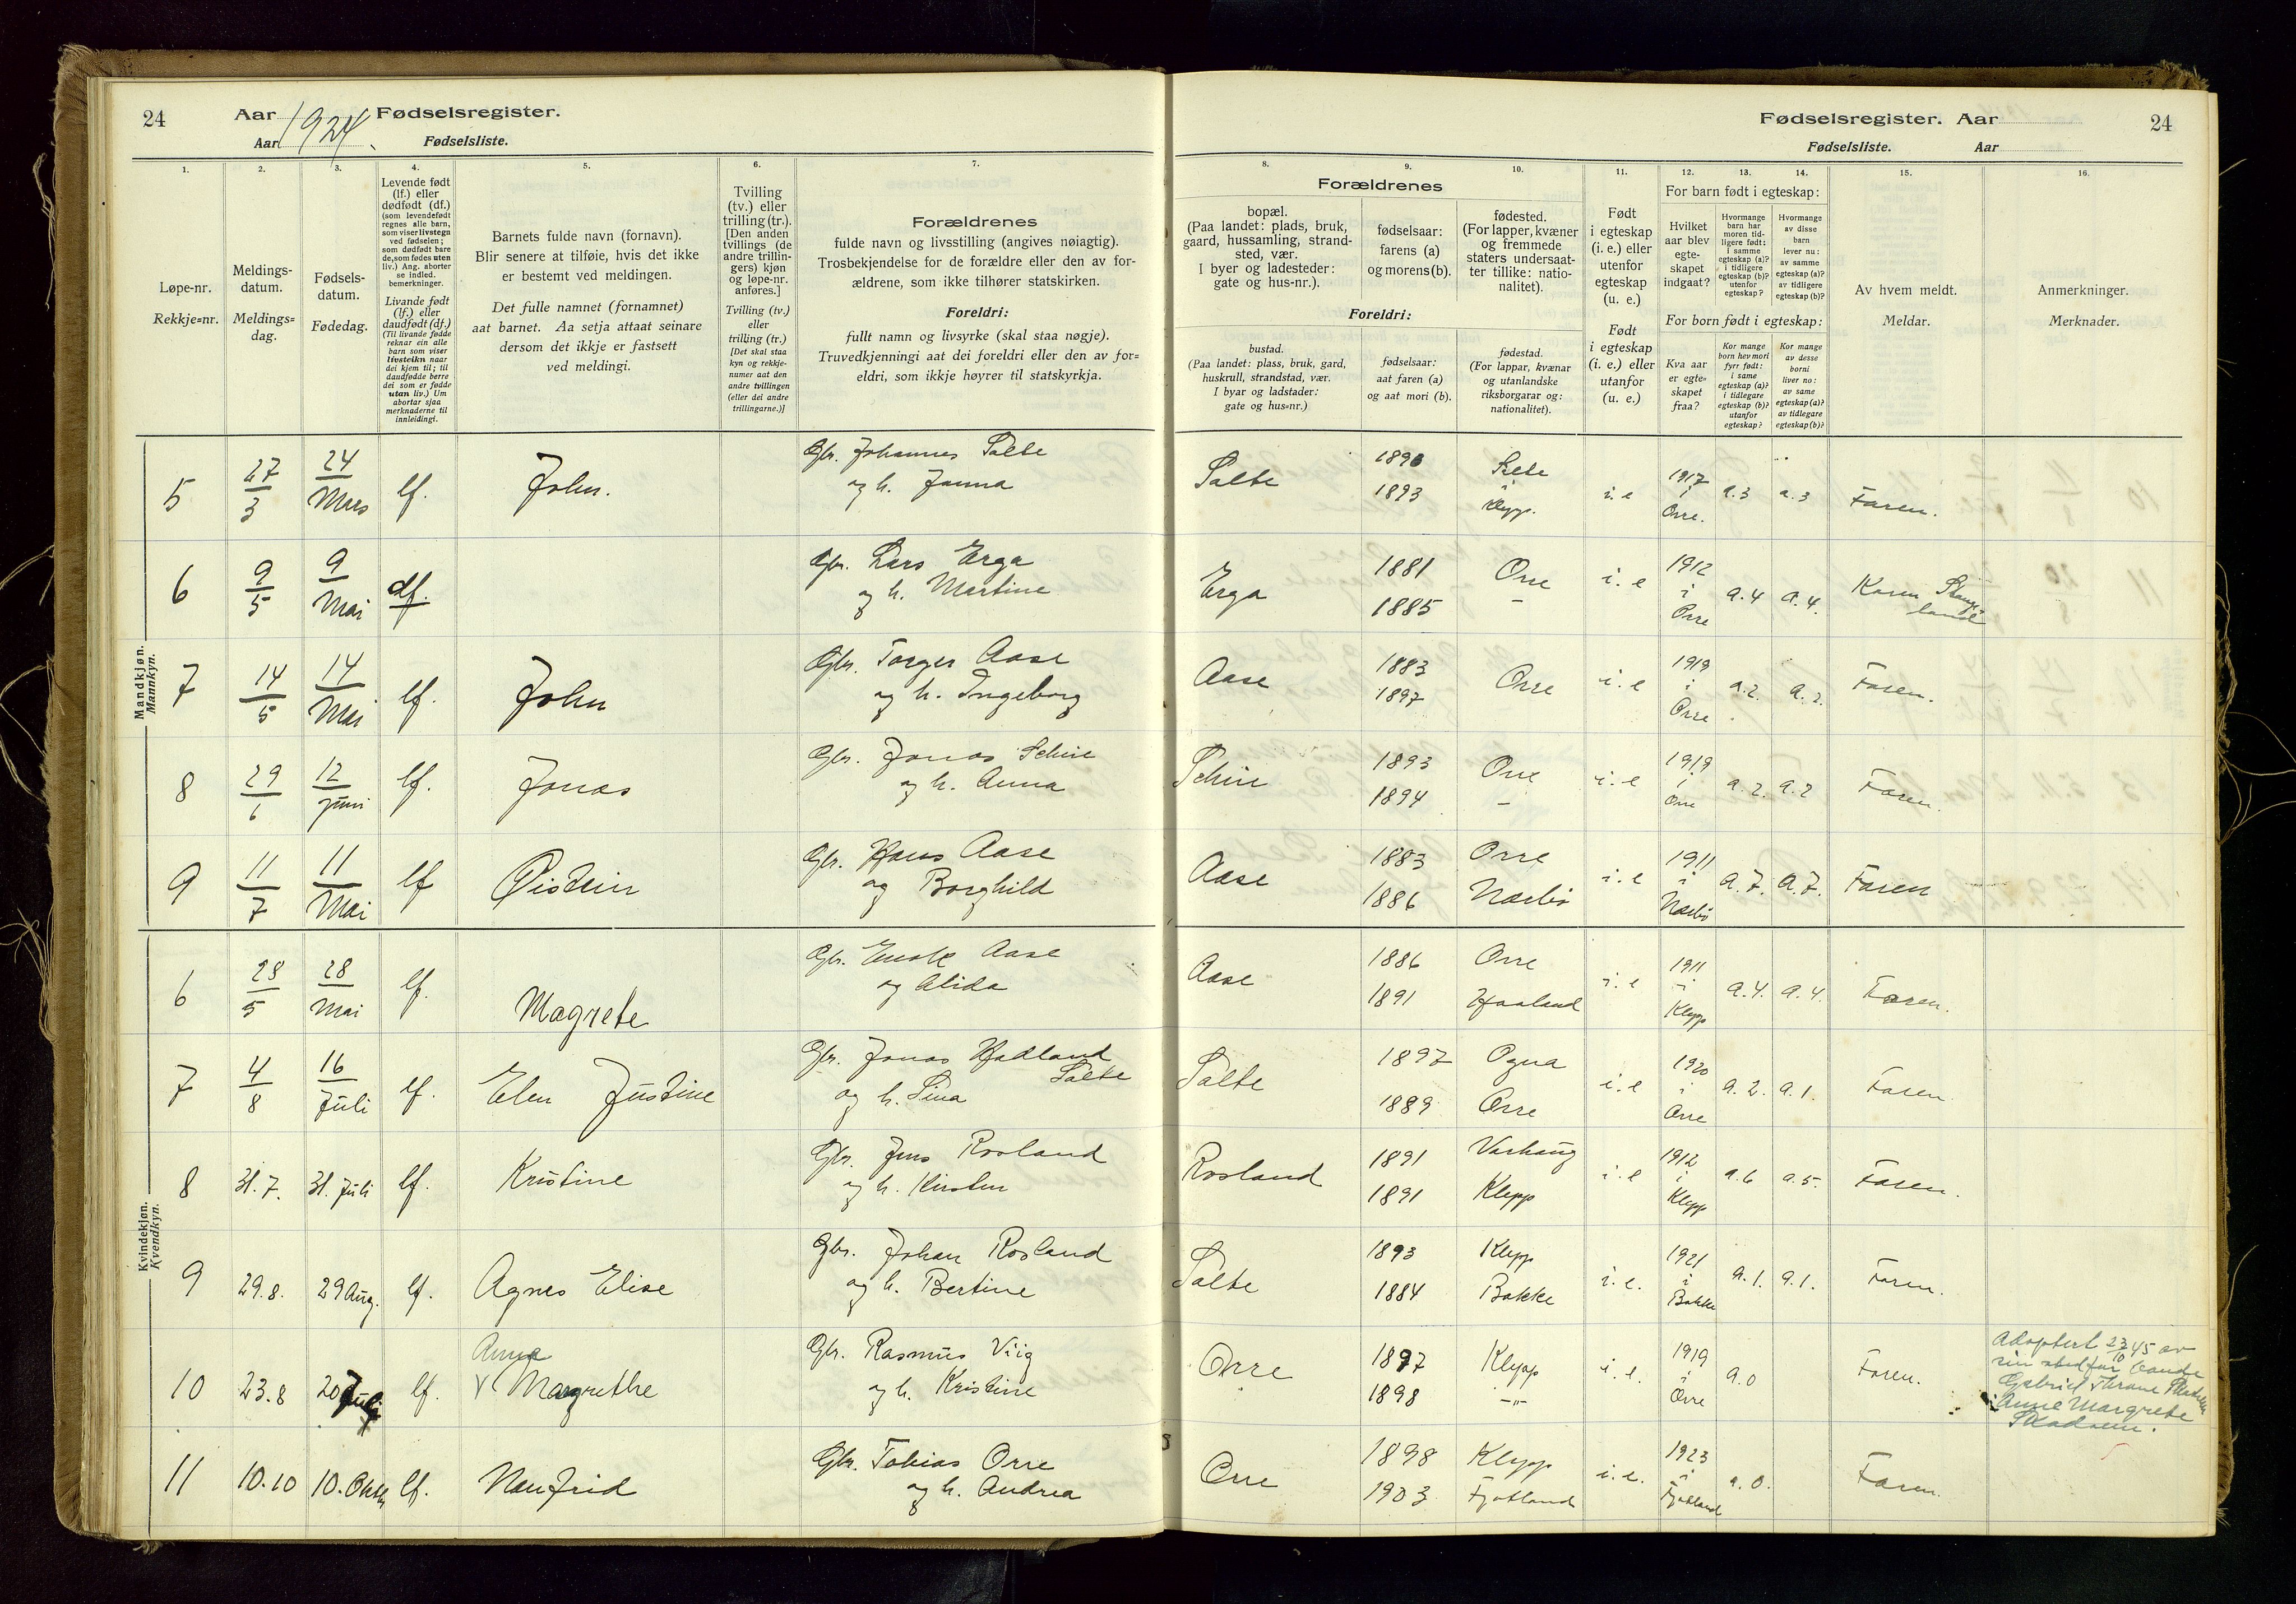 24
Aar 1924. Fødselsregister.
Aar Fødselsliste.
Fødselsregister. Aar
24
Fødselsliste. Aar
1. 2. 3. 4. 5. 6. 7.
8. 9. 10. 11. 12. 13. 14. 15. 16.
Løpe-nr.
Rekkje=nr.
Meldings-
datum.
Meldings=
dag.
Fødsels-
datum.
Fødedag.
Levende født
(lf.) eller
dødfødt (df.)
(som levendefødt
regnes alle barn,
som viser livstegn
ved fødselen;
som dødfødt bare
de, som fødes uten
liv.) Ang. aborter
se indled.
bemerkninger.
Livande født
(lf.) eller
daudfødt (df.)
(Til livande fødde
reknar ein alle
barn som viser
livsteikn naar
dei kjem til; til
daudfødde berre
dei som er fødde
utan liv.) Um
abortar sjaa
merknaderne til
innleidingi.
Barnets fulde navn (fornavn).
Blir senere at tilføie, hvis det ikke
er bestemt ved meldingen.
Det fulle namnet (fornamnet)
aat barnet. Aa setja attaat seinare
dersom det ikkje er fastsett
ved meldingi.
Tvilling
(tv.) eller
trilling (tr.).
[Den anden
tvillings (de
andre trillin-
gers) kjøn
og løpe-nr.
anføres.]
Tvilling (tv.)
eller
trilling (tr.)
[Det skal staa
kyn og rekkje-
numer aat den
andre tvillingen
(eller dei andre
trillingarne.)]
Forældrenes
fulde navn og livsstilling (angives nøiagtig).
Trosbekjendelse for de forældre eller den av for-
ældrene, som ikke tilhører statskirken.
Foreldri:
fullt namn og livsyrke (skal staa nøgje).
Truvedkjenningi aat dei foreldri eller den av for=
eldri, som ikkje høyrer til statskyrkja.
Forældrenes
bopæl.
(Paa landet: plads, bruk,
gaard, hussamling, strand-
sted, vær.
I byer og ladesteder:
gate og hus-nr.).
fødselsaar:
farens (a)
og morens (b).
fødested.
(For lapper, kvæner
og fremmede
staters undersaat-
ter tillike: natio-
nalitet).
Foreldri:
bustad.
(Paa landet: plass, bruk, gard,
huskrull, strandstad, vær.
I byar og ladstader:
gate og hus=nr.)
fødselsaar:
aat faren (a)
og aat mori (b).
fødestad.
(For lappar, kvænar
og utanlandske
riksborgarar og:
nationalitet).
Født
i egteskap
(i. e.) eller
utenfor
egteskap
(u. e.)
Født
i egteskap
(i. e.) eller
utanfor
(u. e.)
For barn født i egteskap:
Hvilket
aar blev
egte-
skapet
indgaat?
Hvormange
barn har
moren tid-
ligere født:
i samme
egteskap (a)?
i tidligere
egteskap (b)?
utenfor
egteskap?
Hvormange
av disse
barn
lever nu:
av samme
egteskap (a)?
av tidligere
egteskap (b)?
For born født i egteskap:
Kva aar
er egte=
skapet
fraa?
Kor mange
born hev mori
fyrr født:
i same
egteskap (a)?
i tidlegare
egteskap (b)?
utanfor
egteskap?
Kor mange
av desse
borni
liver no:
av same
egteskap (a)?
av tidlegare
egteskap (b)?
Av hvem meldt.
Meldar.
Anmerkninger.
Merknader.
Mandkjøn.
Mannkyn.
5 27/3 24 Mars lf. John. Gbr. Johannes Salte
og h. Janna
Salte 1890 1893 Klepp. i. e 1917 i Orre. a. 3 a. 3 Faren.
6 9/5 9 Mai df. Gbr. Lars Erga
og h. Martine
Erga 1881 1885 Orre – i. e 1912 i Orre a. 4 a. 4. Karen
7 14/5 14 Mai lf. John Gbr. Torger Aase
og h. Ingeborg
Aase 1883 1897 Orre i. e 1919 i Orre a. 2. a. 2. Faren.
8 29/6 12 Juni lf. Jonas Gbr. Jonas Schie
og h. Anna
Schie 1893 1894 Orre – i. e 1919 i Orre a. 2. a. 2 Faren.
9 11/7 11 Mai lf Øistein Gbr. Hans Aase
og Borghild
Aase 1883 1886 Orre Nærbø i. e 1911 i Nærbø a. 7. a. 7. Faren
Kvindekjøn.
Kvendkyn.
6 28/5 28 Mai lf. Magrete Gbr. Enok Aase
og Alida
Aase 1886 1891 Orre Haaland i. e 1911 i Klepp a. 4. a. 4. Faren.
7 4/8 16 Juli lf. Elen Justine Gbr. Jonas Hadland
Salte
og h. Sina
Salte 1897 1889 Ogna Orre i. e 1920 i Orre a. 2. a. 1. Faren.
8 31. 7. 31. Juli lf. Kristine Gbr. Jens Rosland
og h. Kirsten
Rosland 1891 1891 Varhaug Klepp i. e 1912 i Klepp a. 6 a. 5. Faren.
9 29. 8. 29 Aug. lf. Agnes Elise Gbr. Johan Rosland
og h. Bertine
Salte 1893 1884 Klepp Bakke i. e. 1921 i Bakke a. 1. a. 1. Faren.
Anne
10 23. 8 20 Juli lf. V Margrethe Gbr. Rasmus Viig
og h. Kristine
Orre 1897 1898 Klepp –"– i. e. 1919 i Orre a. 0 Faren.
Adoptert 23/10 45 av
sin stedfar
Gabriel Thrane
Anne Margrete
11 10. 10 10. Okt. lf. Nanfrid Gbr. Tobias Orre
og h. Andrea
Orre 1898 1903 Klepp Fjotland i. e. 1923 i Fjotland a. 0. Faren.